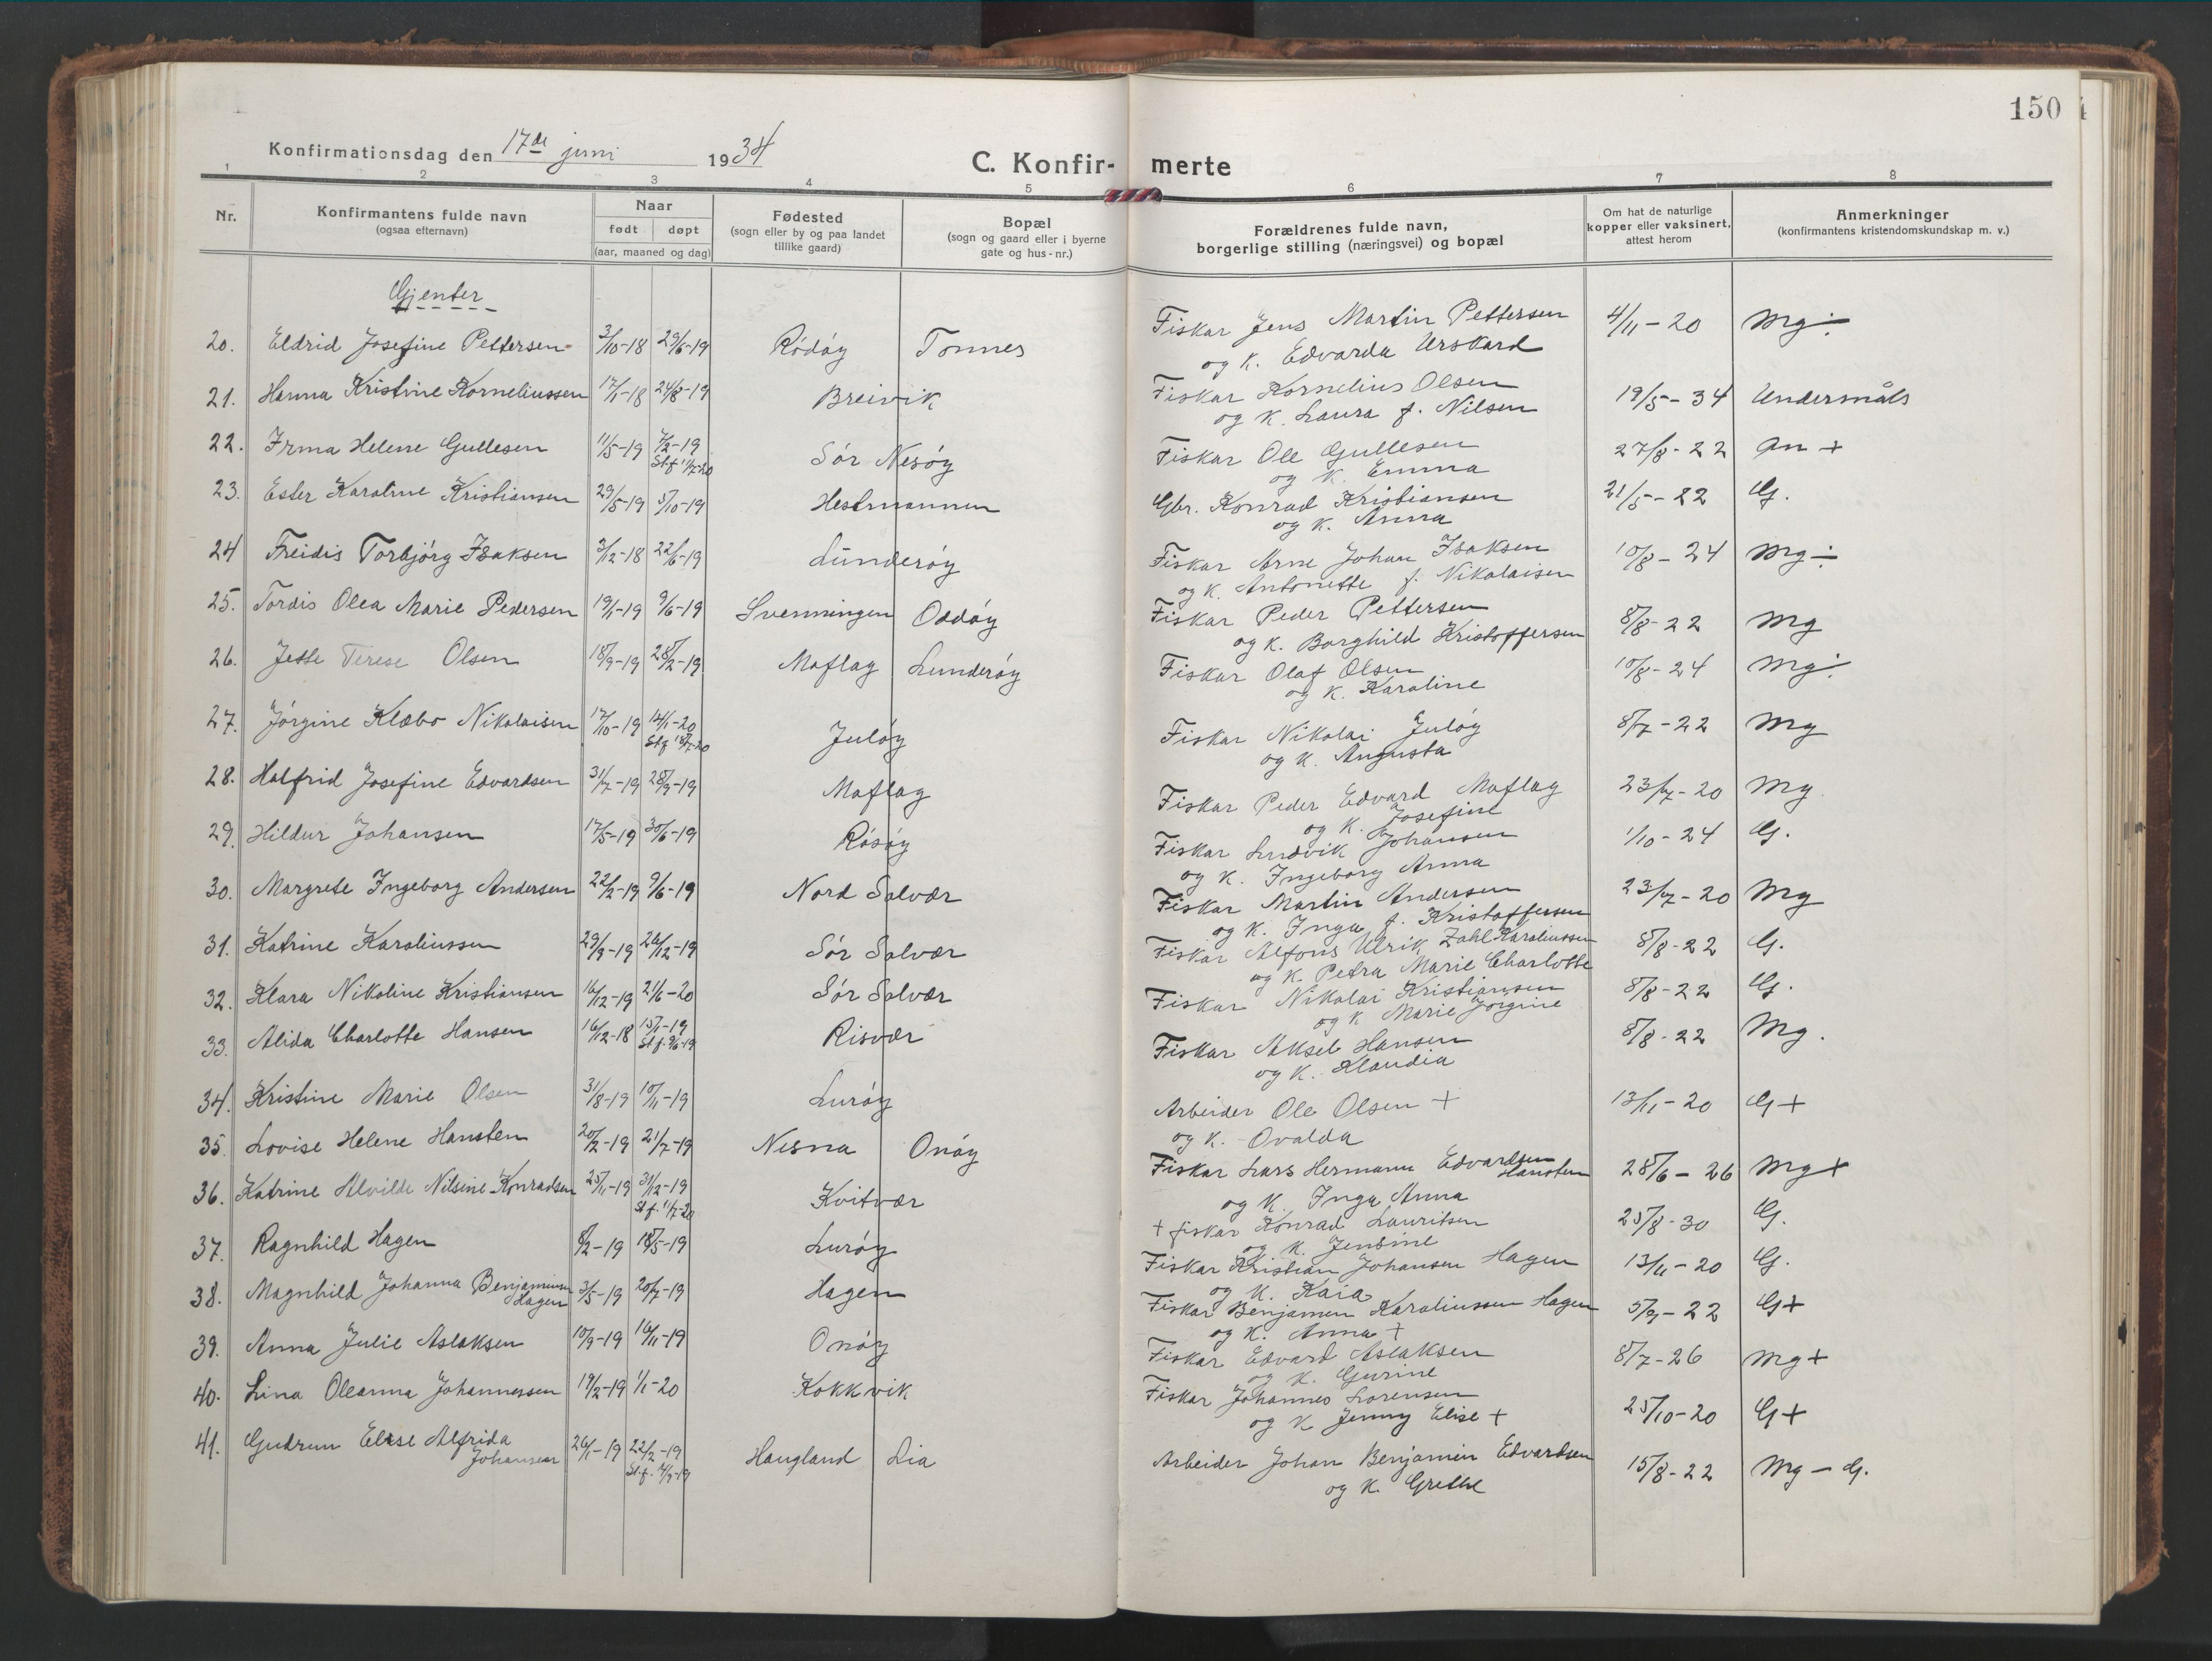 150
Konfirmationsdag den 17de juni 1934
C. Konfirmerte
1 2 3 4 5 6 7 8
Nr.
Konfirmantens fulde navn
(ogsaa efternavn)
Naar
født døpt
(aar, maaned og dag)
Fødested
(sogn eller by og paa landet
tillike gaard)
Bopæl
(sogn og gaard eller i byerne
gate og hus-nr.)
Forældrenes fulde navn,
borgerlige stilling (næringsvei) og bopæl
Om hat de naturlige
kopper eller vaksinert,
attest herom
Anmerkninger
(konfirmantens kristendomskundskap m. v.)
Gjenter
20. Eldrid Josefine Pettersen 3/10-18 29/6-19 Rödöy Tonnes Fiskar Jens Martin Pettersen 4/11-20 Mg ÷
og k. Edvarda Urskard
21. Hanna Kristine Korneliussen 17/1-18 24/8-19 Breivik Fiskar Kornelius Olsen 19/5-34 Undermåls
og k. Laura f. Nilsen
22. Irma Helene Gullesen 11/5-19 7/2-19 Sör Nesöy Fiskar Ole Gullesen 27/8-22 An +
St.f. 11/7-20 og k. Emma
23. Ester Karoline Kristiansen 29/5-19 5/10-19 Hestmannen Gbr. Konrad Kristiansen 21/5-22 G.
og k. Anna
24 Freidis Torbjörg Isaksen 3/12-18 22/6-19 Lunderöy Fiskar Arne Johan Isaksen 10/8-24 Mg ÷
og k. Antonette f. Nikolaisen
25. Tordis Olea Marie Pedersen 19/1-19 9/6-19 Svenningen Oddöy Fiskar Peder Pettersen 8/8-22 Mg
og k. Borghild Kristoffersen
26. Jette Terese Olsen 18/9-19 28/12-19 Moflag Lunderöy Fiskar Olaf Olsen 10/8-24 Mg ÷
og k. Karoline
27. Jörgine Klæbo Nikolaisen 17/10-19 14/1-20 Julöy Fiskar Nikolai Julöy 8/7-22 Mg
St.f. 18/7-20 og k. Augusta
28. Halfrid Josefine Edvardsen 31/7-19 28/9-19 Moflag Fiskar Peder Edvard Moflag 23/7-20 Mg
og k. Josefine
29. Hildur Johansen 17/5-19 30/6-19 Rösöy Fiskar Ludvik Johansen 1/10-24 G.
og k. Ingeborg Anna
30. Margrete Ingeborg Andersen 22/2-19 9/6-19 Nord Solvær Fiskar Martin Andersen 23/7-20 Mg
og k. Inga f. Kristoffersen
31. Katrine Karoliussen 29/9-19 26/12-19 Sör Solvær Fiskar Alfons Ulrik Zahl Karoliussen 8/8-22 G.
og k. Petra Marie Charlotte
32. Klara Nikoline Kristiansen 16/12-19 21/6-20 Sör Solvær Fiskar Nikolai Kristiansen 8/8-22 G.
og k Marie Jörgine
33. Alida Charlotte Hansen 16/12-18 15/1-19 Risvær Fiskar Aksel Hansen 8/8-22 Mg.
St.f. 9/6-19 og k. Klaudia
34. Kristine Marie Olsen 31/8-19 10/11-19 Luröy Arbeider Ole Olsen + 13/11-20 G +
og k. Ovalda
35. Lovise Helene Hansten 20/2-19 21/7-19 Nesna Onöy Fiskar Lars Hermann Edvardsen Hansten 28/6-26 Mg +
og k. Inga Anna
36. Katrine Alvilde Nilsine Konradsen 25/11-19 31/12-19 Kvitvær + fiskar Konrad Lauritsen 25/8-30 G.
St.f. 11/7-20 og k. Jensine
37. Ragnhild Hagen 8/2-19 18/5-19 Luröy Fiskar Kristian Johansen Hagen 13/11-20 G.
og k. Kaia
38. Magnhild Johanna Benjaminsen Hagen 3/5-19 20/7-19 Hagen Fiskar Benjamen Karoliussen Hagen 5/9-22 G +
og k. Anna +
39. Anna Julie Aslaksen 10/9-19 16/11-19 Onöy Fiskar Edvard Aslaksen 8/7-26 Mg +
og k. Gurine
40. Lina Oleanna Johannessen 19/2-19 1/1-20 Kokkvik Fiskar Johannes Lorensen 25/10-20 G +
og k Jenny Elise +
41. Gudrun Elise Alfrida 26/1-19 22/2-19 Haugland Lia Arbeider Johan Benjamin Edvardsen 15/8-22 Mg - G.
Johansen St.f. og k. Grethe